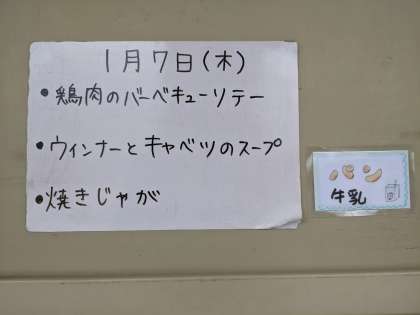 1月7日(木)
•鶏肉のバーベキューソテー
•ウィンナーとキャベツのスープ
•焼きじゃが
パン
牛乳